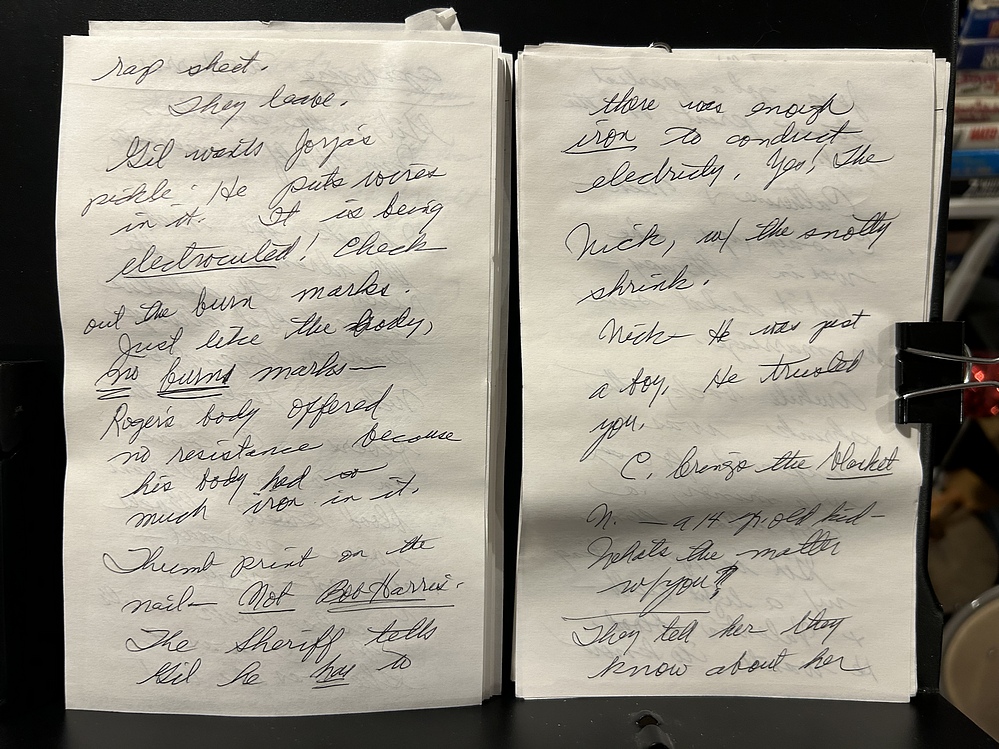 rap sheet.
They leave.
Gil wants Jorja's
pickle. He puts wires
in it. It is being
electrocuted! Check
out the burn marks.
Just like the body,
no burns marks—
Roger's body offered
no resistance because
his body had so
much iron in it.
Thumb print on the
nail— Not Bob Harris.
The Sheriff tells
Gil he has to
there was enough
iron to conduct
electricity. Yes! The
Nick, w/ the snotty
shrink.
Nick— He was just
a boy. He trusted
you.
C. brings the blanket
N. — a 14 yr. old kid—
Whats the matter
w/you?
They tell her they
know about her